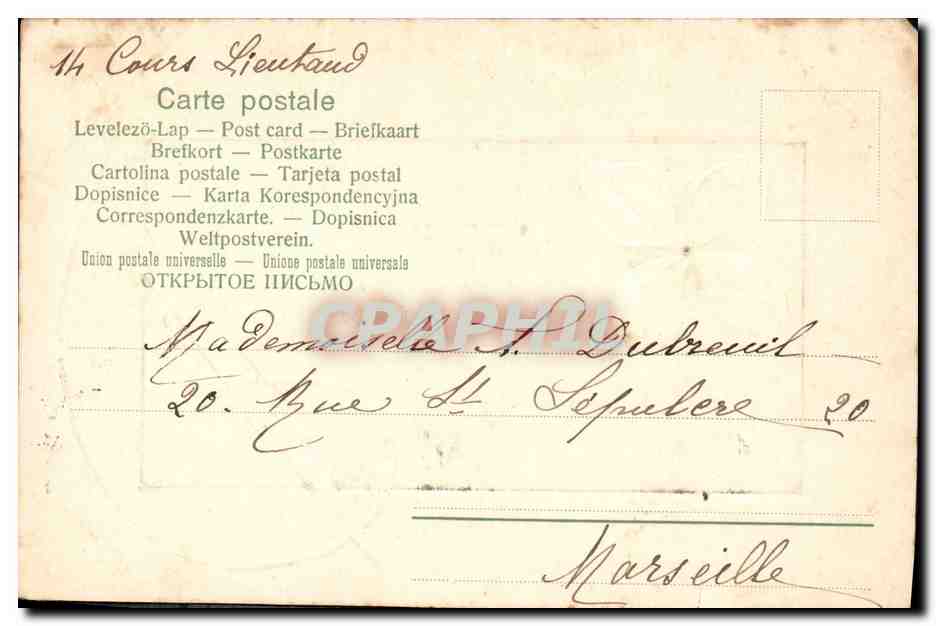 14 Cours Lieutaud
Carte postale
Levelező-Lap — Post card — Briefkaart
Brefkort — Postkarte
Cartolina postale — Tarjeta postal
Dopisnice — Karta Korespondencyjna
Correspondenzkarte. — Dopisnica
Weltpostverein.
Union postale universelle — Unione postale universale
ОТКРЫТОЕ ПИСЬМО
CPAPHIL
Mademoiselle A. Dubreuil
20. Rue St Sépulcre 20
Marseille